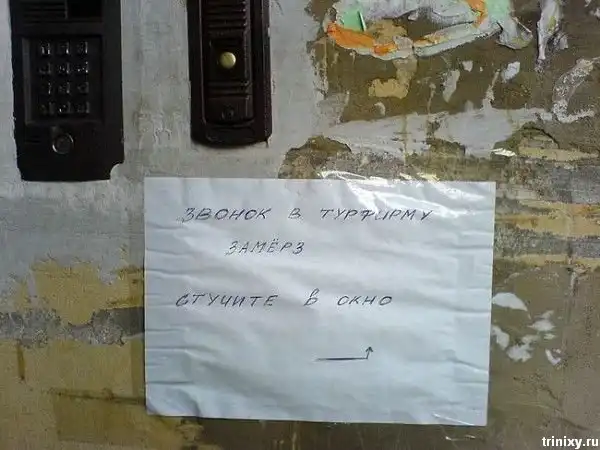 ЗВОНОК В ТУРФИРМУ
ЗАМЁРЗ
СТУЧИТЕ В ОКНО
trinixy.ru